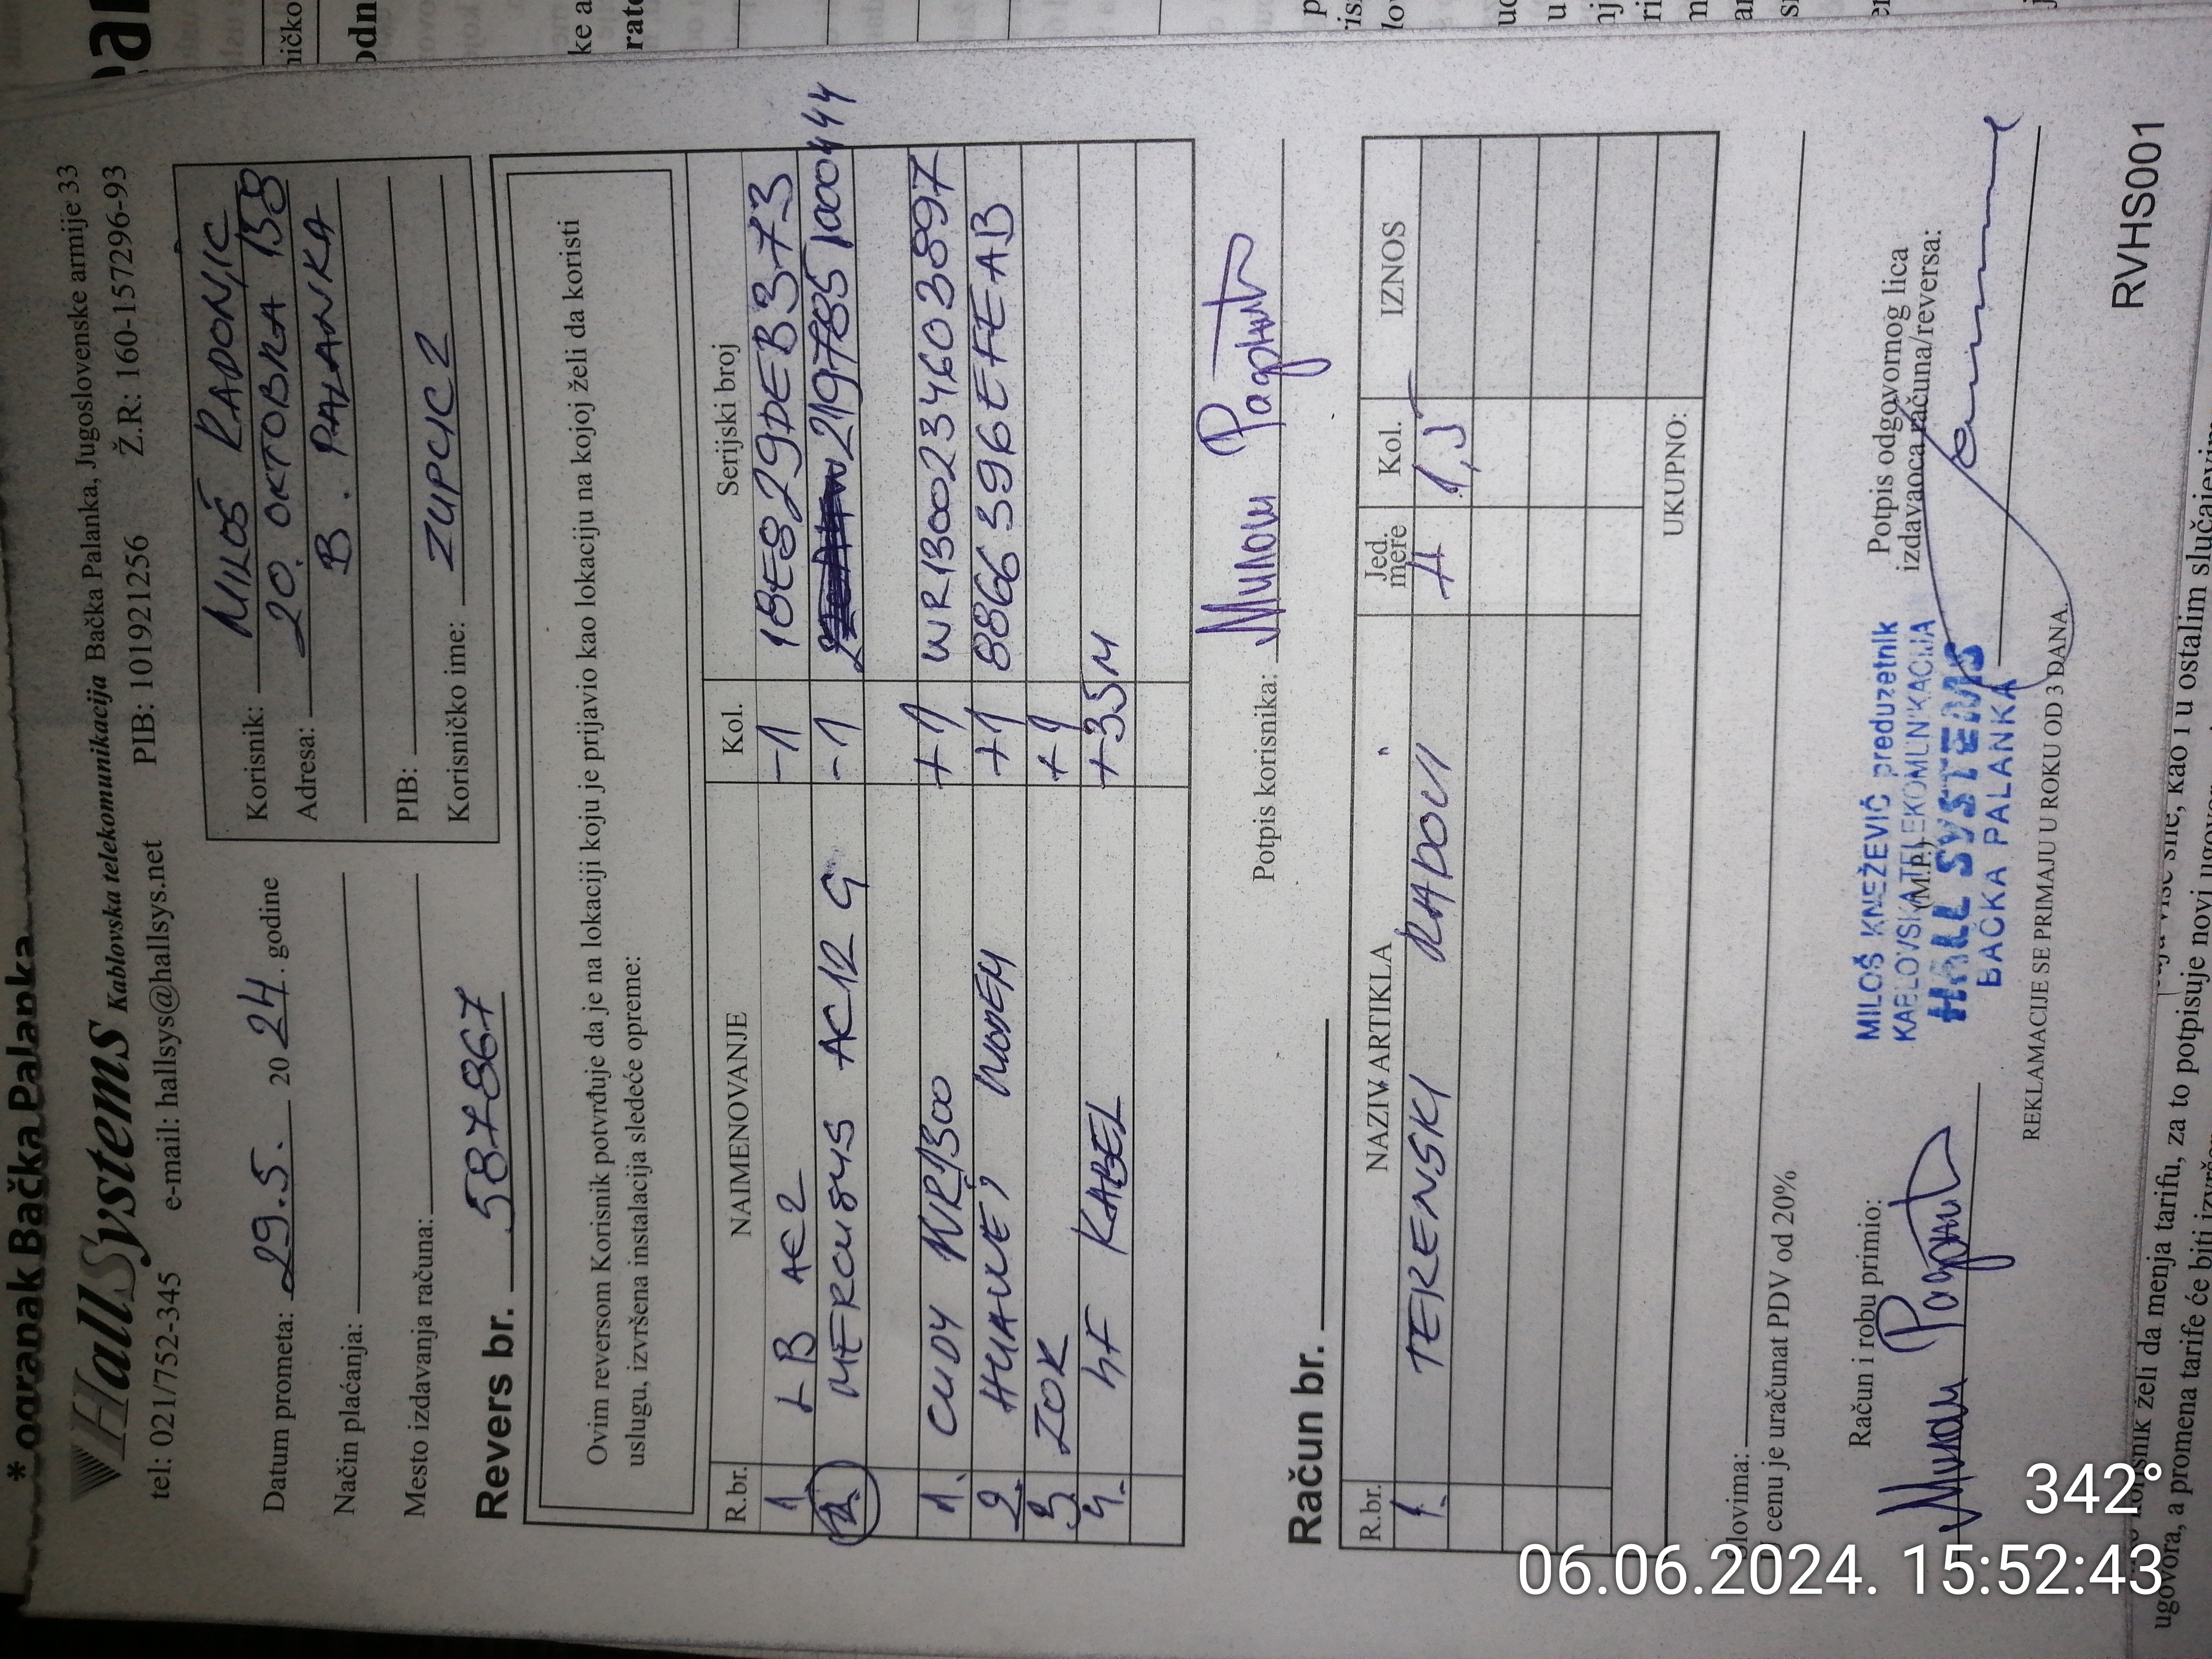 * ogranak Bačka Palanka
HallSystems Kablovska telekomunikacija Bačka Palanka, Jugoslovenske armije 33
tel: 021/752-345 e-mail: hallsys@hallsys.net PIB: 101921256 Ž.R: 160-157296-93
Datum prometa: 29.5. 2024. godine
Način plaćanja:
Mesto izdavanja računa:
Korisnik: MILOŠ RADONJIC
Adresa: 20. OKTOBRA 158
B. PALANKA
PIB:
Korisničko ime: ZUPCIC2
Revers br. 587867
Ovim reversom Korisnik potvrđuje da je na lokaciji koju je prijavio kao lokaciju na kojoj želi da koristi
uslugu, izvršena instalacija sledeće opreme:
R.br. NAIMENOVANJE Kol. Serijski broj
1. LB AC2 -1 18E829DEB373
2. MERCUSYS AC12 G -1 2197785100044
1. CUDY WR1300 +1 WR1300234603897
2. HUAWEI MODEM +1 8866396EFEAB
3. ZOK +1
4. HF KABEL +35M
Potpis korisnika: Милош
Račun br.
R.br. NAZIV ARTIKLA Jed. mere Kol. IZNOS
1. TERENSKI RADOVI H 1,5
UKUPNO:
Slovima:
U cenu je uračunat PDV od 20%
Račun i robu primio:
Милош
(M.P.)
MILOŠ KNEŽEVIĆ preduzetnik
KABLOVSKA TELEKOMUNIKACIJA
HALL SYSTEMS
BAČKA PALANKA
Potpis odgovornog lica
izdavaoca računa/reversa:
REKLAMACIJE SE PRIMAJU U ROKU OD 3 DANA.
RVHS001
želi da menja tarifu, za to potpisuje novi
ugovora, a promena tarife će biti
kao i u ostalim slučajevim
342°
06.06.2024. 15:52:43